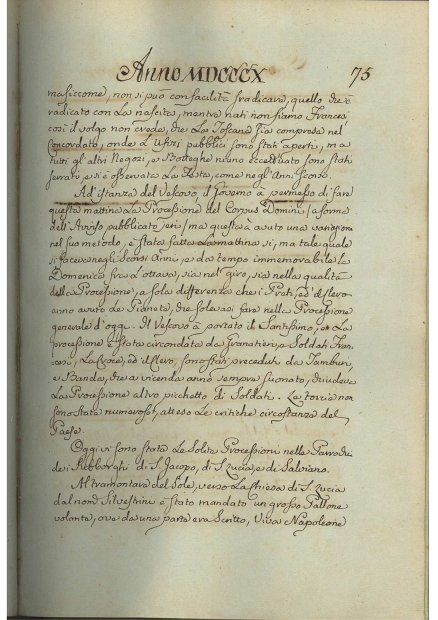 Anno MDCCCX 75
masiccome, non si può con facilità sradicare, quello che è
radicato con la nascita, mentre nati non siamo Francesi
così il volgo non crede, che La Toscana sia compresa nel
Concordato, onde L'Ufizj pubblici sono stati aperti, ma
tutti gl'altri Negozj, e Botteghe niuno eccettuato sono stati
serrati, e si è osservata La Festa, come negl'Anni scorsi.
Ad istanza del Vescovo, il Governo à permesso di fare
questa mattina La Processione del Corpus Domini, a forma
dell'Avviso pubblicato jeri, ma questa à avuto una variazione
nel suo metodo, è stata fatta La mattina si, ma tale quale
si faceva negli Scorsi Anni, e da tempo immemorabile La
Domenica fra L'ottava, sia nel giro, sia nella qualità
della Processione, a sola differenza che i Preti, ed il Clero
anno avuto Le Pianete, che solevasi fare nella Processione
generale d'oggi. Il Vescovo à portato il Santissimo, La
processione è stata circondata da Granatieri, e Soldati Fran=
cesi, La Croce, ed il Clero, sono stati preceduti da Tamburi,
e Banda, che a vicenda anno sempre suonato, chiudeva
La Processione altro picchetto di Soldati. Le torcie non
sono state numerose, atteso Le critiche circostanze del
Paese.
Oggi vi sono state Le Solite Processioni nelle Parrochie
de i Sobborghi di S. Jacopo, di S. Lucia, e di Salviano.
Al tramontare del Sole, verso La Chiesa di S. Lucia
dal nond Silvestrini è stato mandato un grosso Pallone
volante, ove da una parte era Scritto, Viva Napoleone